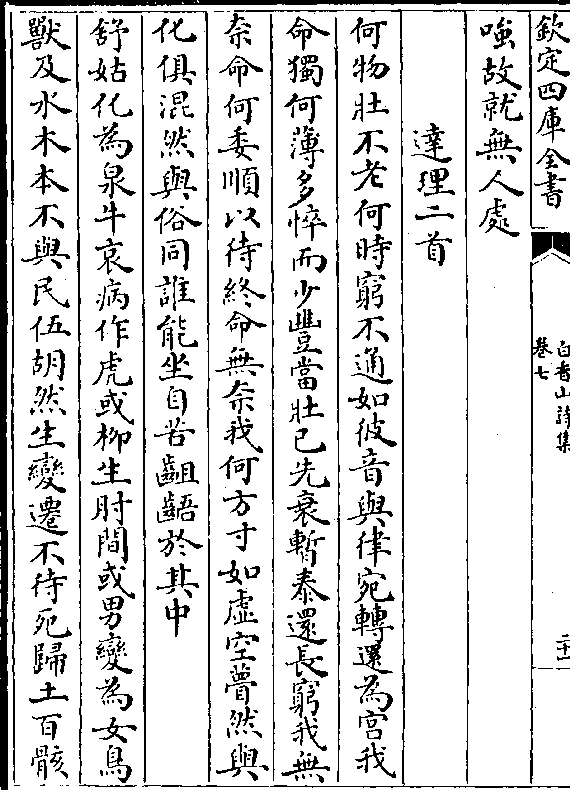 欽定四庫全書
白香山詩集
卷七
二十一
嗤故就無人處
達理二首
何物壯不老何時窮不通如彼音與律宛轉還為宫我
命獨何薄多悴而少豐當壯已先衰暫泰還長窮我無
奈命何委順以待終命無奈我何方寸如虛空瞢然與
化俱混然與俗同誰能坐自苦齟齬於其中
舒姑化為泉牛哀病作虎或柳生肘間或男變為女鳥
獸及水木本不與民伍胡然生變遷不待死歸土百骸